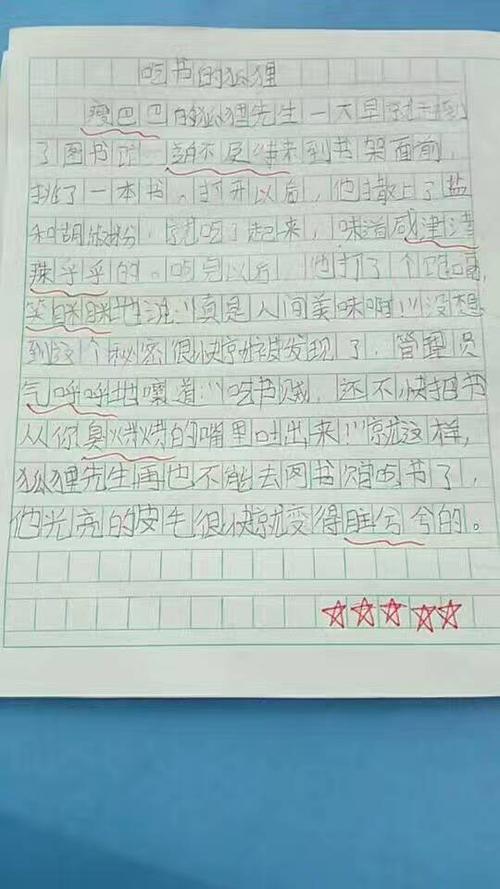 吃书的狐狸
瘦巴巴的狐狸先生一大早就来到
了图书馆,迫不及待来到书架面前,
找了一本书。打开以后,他撒上了盐
和胡椒粉,就吃了起来,味道咸津津
辣乎乎的。吃完以后,他打了个饱嗝,
笑眯眯地说:"真是人间美味啊!"没想
到这个秘密很快就被发现了,管理员
气呼呼地嚷道:"吃书贼,还不快把书
从你臭烘烘的嘴里吐出来!"就这样,
狐狸先生再也不能去图书馆吃书了,
他光亮的皮毛很快就变得脏兮兮的。